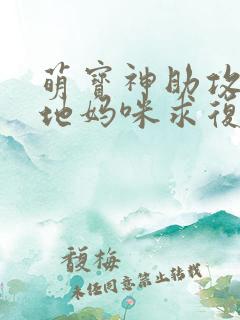 萌寶神助攻
地媽咪求復
馥梅
未經同意禁止轉載